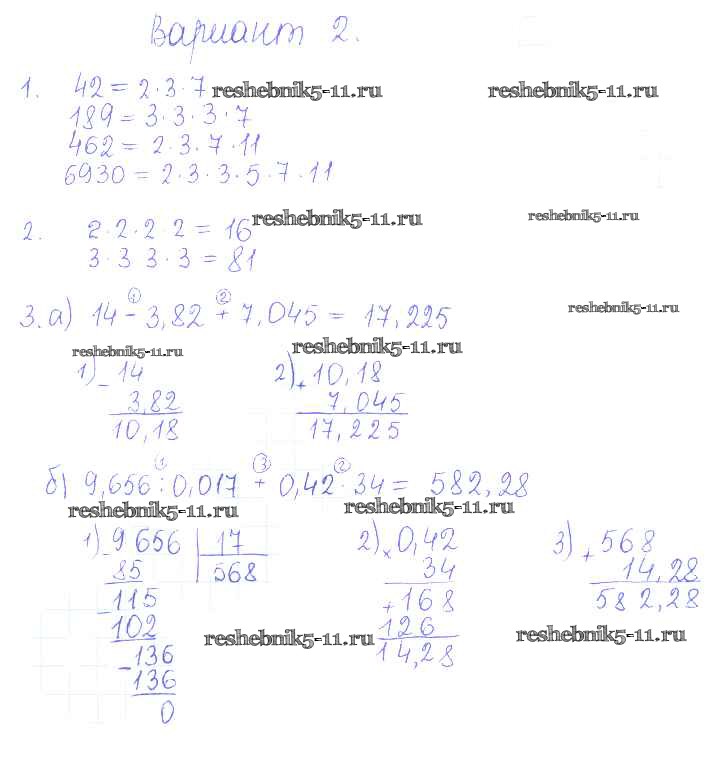 Вариант 2.
1. 42 = 2·3·7 reshebnik5-11.ru reshebnik5-11.ru
189 = 3·3·3·7
462 = 2·3·7·11
6930 = 2·3·3·5·7·11
2. 2·2·2·2 = 16 reshebnik5-11.ru reshebnik5-11.ru
3·3 3·3 = 81
reshebnik5-11.ru
① ②
3. а) 14 - 3,82 + 7,045 = 17,225
reshebnik5-11.ru reshebnik5-11.ru
1) - 14 2) + 10,18
3,82 7,045
10,18 17,225
① ③ ②
б) 9,656 : 0,017 + 0,42 · 34 = 582,28
reshebnik5-11.ru reshebnik5-11.ru
1) - 9656 17 2) × 0,42 3) + 568
85 568 34 14,28
- 115 + 168 582,28
102 126
reshebnik5-11.ru reshebnik5-11.ru
- 136 14,28
136
0